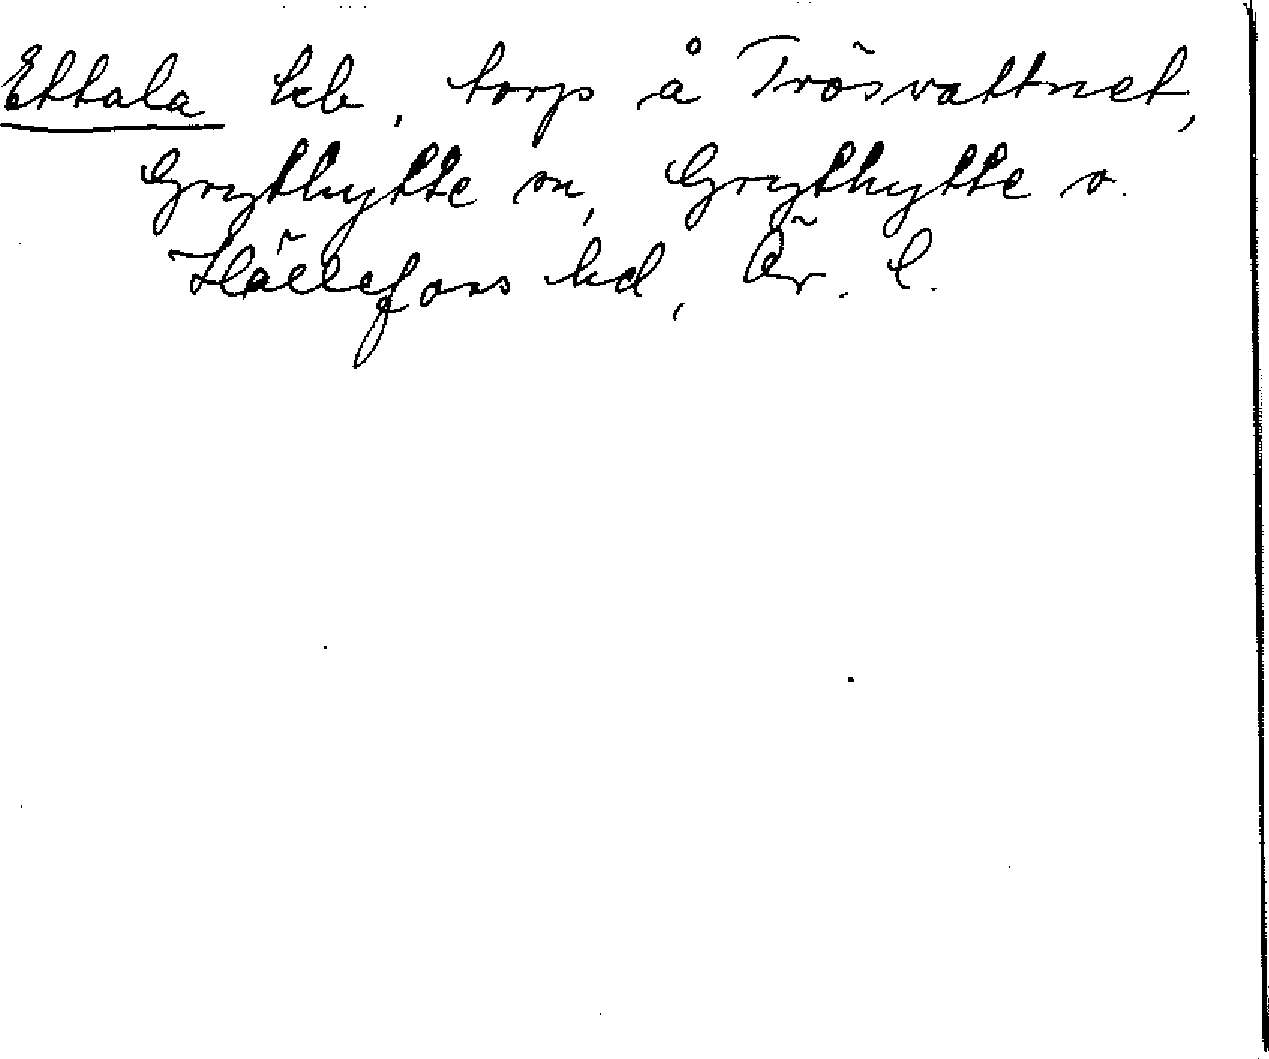 Ettala lεb, torp å Trösvattnet,
Grythytte sn, Grythytte o.
Hällefors hd, Ör. l.